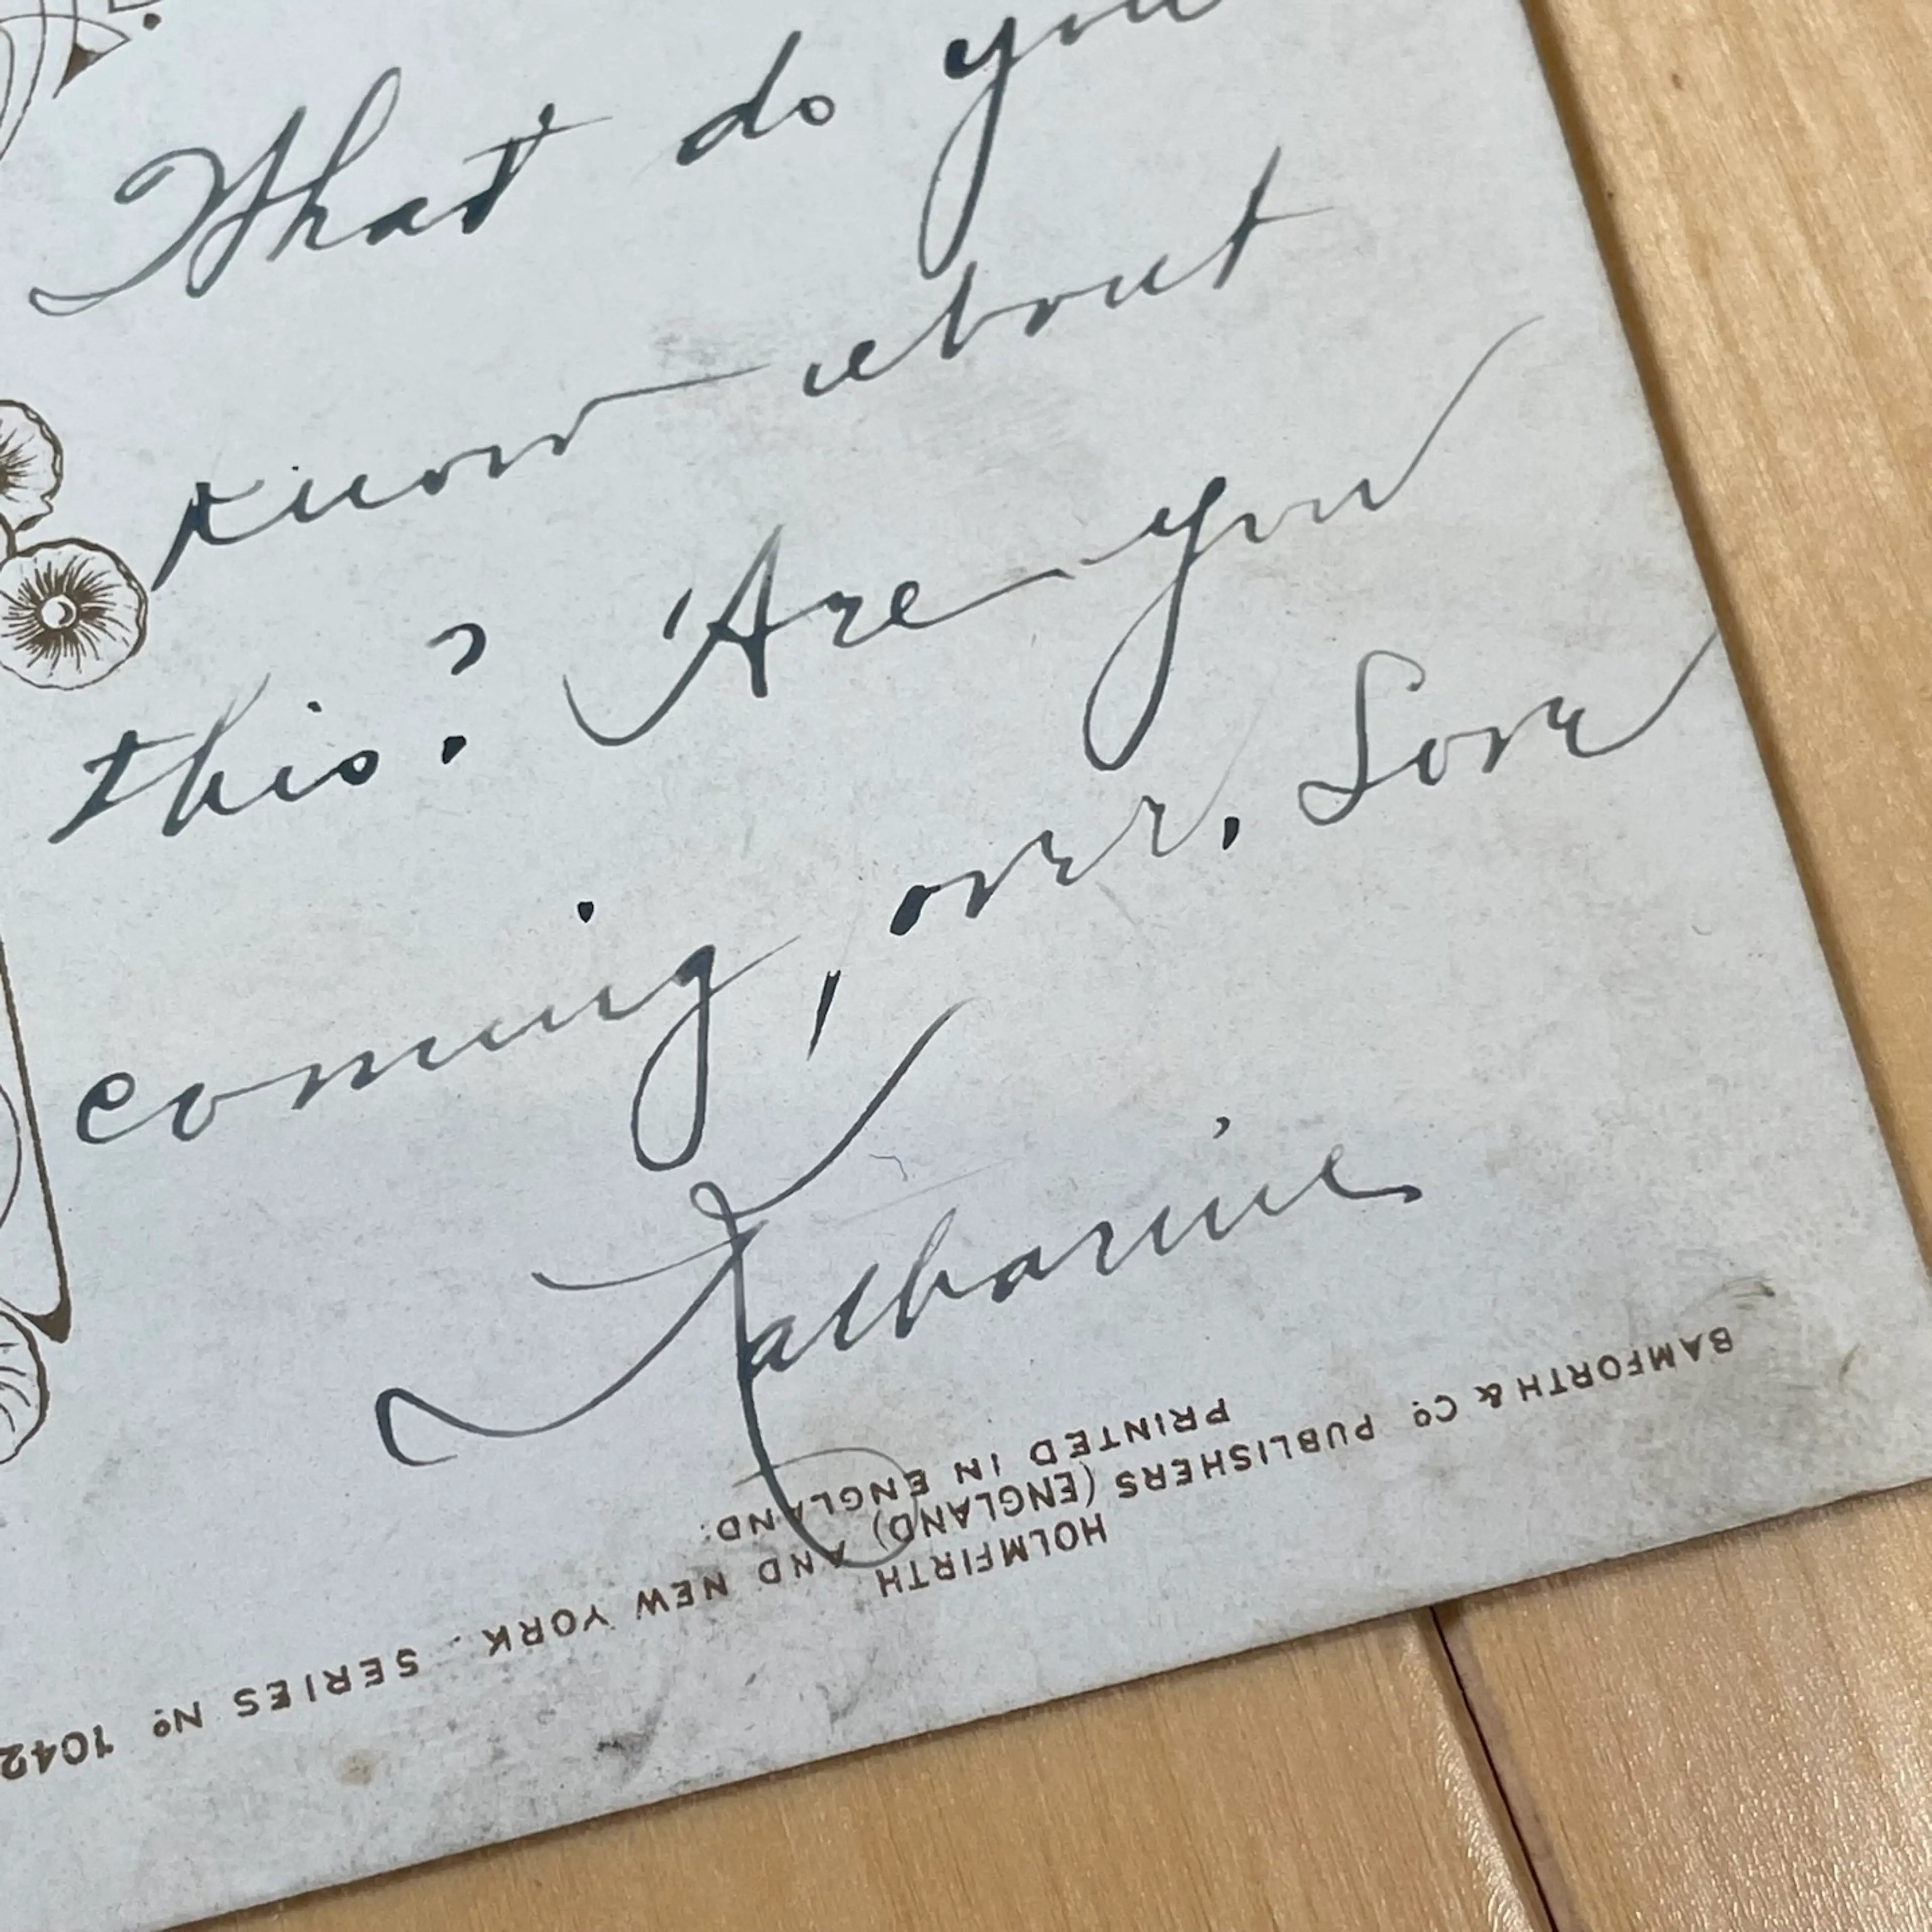 What do you
know about
this? Are you
coming over. Love
Katharine
BAMFORTH & Cº PUBLISHERS (ENGLAND) AND NEW YORK. SERIES Nº 1042
HOLMFIRTH
PRINTED IN ENGLAND.